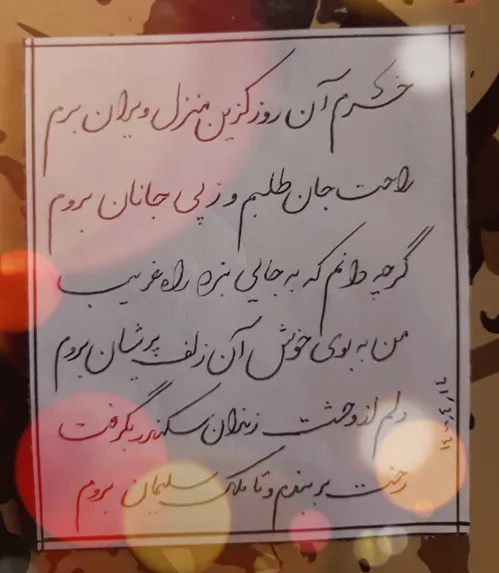 خرم آن روز کزین منزل ویران بروم
راحت جان طلبم و ز پی جانان بروم
گرچه دانم که به جایی نبرد راه غریب
من به بوی خوش آن زلف پریشان بروم
دلم از وحشت زندان سکندر بگرفت
رخت بربندم و تا ملک سلیمان بروم